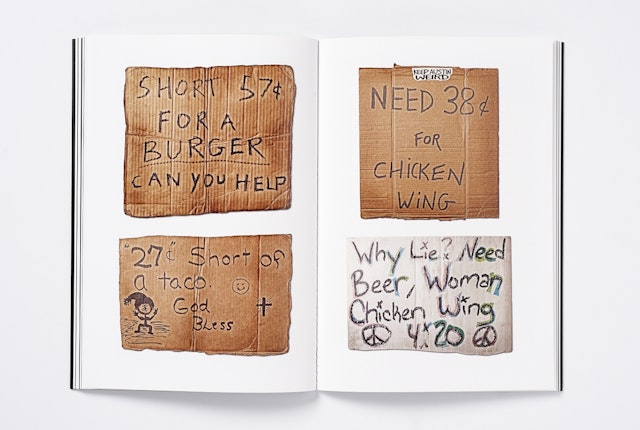 SHORT 57¢
FOR A
BURGER
CAN YOU HELP
"27¢" Short of
a taco.
God
Bless
KEEP AUSTIN
WEIRD
NEED 38¢
FOR
CHICKEN
WING
Why Lie? Need
Beer, Woman
Chicken Wing
4:20